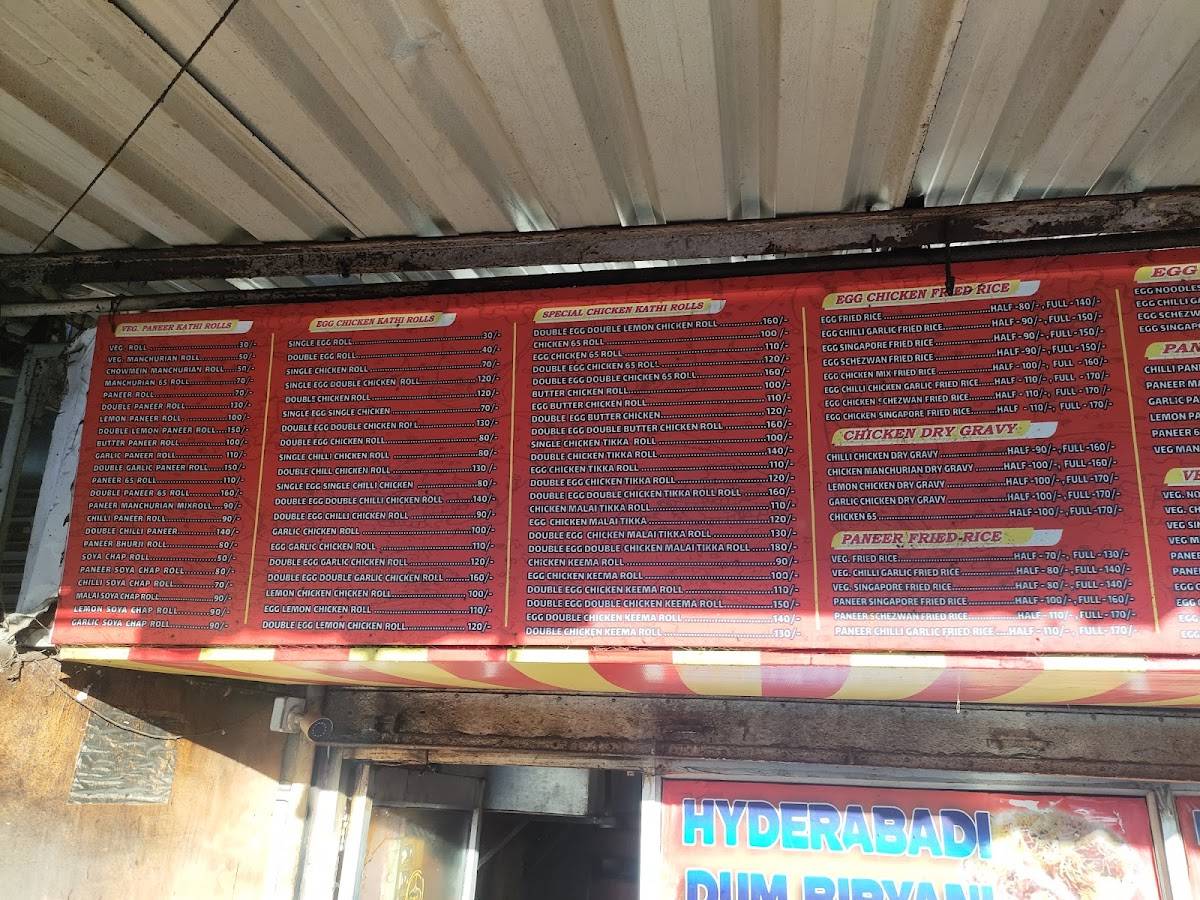 VEG. PANEER KATHI ROLLS
VEG. ROLL 30/-
VEG. MANCHURIAN ROLL 50/-
CHOWMEIN MANCHURIAN ROLL 50/-
MANCHURIAN 65 ROLL 70/-
PANEER ROLL 70/-
DOUBLE PANEER ROLL 130/-
LEMON PANEER ROLL 100/-
DOUBLE LEMON PANEER ROLL 150/-
BUTTER PANEER ROLL 100/-
GARLIC PANEER ROLL 110/-
DOUBLE GARLIC PANEER ROLL 150/-
PANEER 65 ROLL 110/-
DOUBLE PANEER 65 ROLL 160/-
PANEER MANCHURIAN MIXROLL 90/-
CHILLI PANEER ROLL 90/-
DOUBLE CHILLI PANEER 140/-
PANEER BHURJI ROLL 80/-
SOYA CHAP ROLL 50/-
PANEER SOYA CHAP ROLL 80/-
CHILLI SOYA CHAP ROLL 70/-
MALAI SOYA CHAP ROLL 90/-
LEMON SOYA CHAP ROLL 90/-
GARLIC SOYA CHAP ROLL 90/-
EGG CHICKEN KATHI ROLLS
SINGLE EGG ROLL 30/-
DOUBLE EGG ROLL 40/-
SINGLE CHICKEN ROLL 70/-
SINGLE EGG DOUBLE CHICKEN ROLL 120/-
DOUBLE CHICKEN ROLL 120/-
SINGLE EGG SINGLE CHICKEN 70/-
DOUBLE EGG DOUBLE CHICKEN ROLL 130/-
DOUBLE EGG CHICKEN ROLL 80/-
SINGLE CHILLI CHICKEN ROLL 80/-
DOUBLE CHILL CHICKEN ROLL 130/-
SINGLE EGG SINGLE CHILLI CHICKEN 80/-
DOUBLE EGG DOUBLE CHILLI CHICKEN ROLL 140/-
DOUBLE EGG CHILLI CHICKEN ROLL 90/-
GARLIC CHICKEN ROLL 100/-
EGG GARLIC CHICKEN ROLL 110/-
DOUBLE EGG GARLIC CHICKEN ROLL 120/-
DOUBLE EGG DOUBLE GARLIC CHICKEN ROLL 160/-
LEMON CHICKEN CHICKEN ROLL 100/-
EGG LEMON CHICKEN ROLL 110/-
DOUBLE EGG LEMON CHICKEN ROLL 120/-
SPECIAL CHICKEN KATHI ROLLS
DOUBLE EGG DOUBLE LEMON CHICKEN ROLL 160/-
CHICKEN 65 ROLL 100/-
EGG CHICKEN 65 ROLL 110/-
DOUBLE EGG CHICKEN 65 ROLL 120/-
DOUBLE EGG DOUBLE CHICKEN 65 ROLL 160/-
BUTTER CHICKEN ROLL 100/-
EGG BUTTER CHICKEN ROLL 110/-
DOUBLE EGG BUTTER CHICKEN 120/-
DOUBLE EGG DOUBLE BUTTER CHICKEN 160/-
SINGLE CHICKEN TIKKA ROLL 100/-
DOUBLE CHICKEN TIKKA ROLL 140/-
EGG CHICKEN TIKKA ROLL 110/-
DOUBLE EGG CHICKEN TIKKA ROLL 120/-
DOUBLE EGG DOUBLE CHICKEN TIKKA ROLL ROLL 160/-
CHICKEN MALAI TIKKA ROLL 110/-
EGG CHICKEN MALAI TIKKA 120/-
DOUBLE EGG CHICKEN MALAI TIKKA ROLL 130/-
DOUBLE EGG DOUBLE CHICKEN MALAI TIKKA ROLL 180/-
CHICKEN KEEMA ROLL 90/-
EGG CHICKEN KEEMA ROLL 100/-
DOUBLE EGG CHICKEN KEEMA ROLL 110/-
DOUBLE EGG DOUBLE CHICKEN KEEMA ROLL 150/-
EGG DOUBLE CHICKEN KEEMA ROLL 140/-
DOUBLE CHICKEN KEEMA ROLL 130/-
EGG CHICKEN FRIED RICE
EGG FRIED RICE HALF -80/- , FULL -140/-
EGG CHILLI GARLIC FRIED RICE HALF -90/- , FULL -150/-
EGG SINGAPORE FRIED RICE HALF -90/- , FULL -150/-
EGG SCHEZWAN FRIED RICE HALF -90/- , FULL -150/-
EGG CHICKEN MIX FRIED RICE HALF - 100/- , FULL - 160/-
EGG CHILLI CHICKEN GARLIC FRIED RICE HALF - 110/- , FULL - 170/-
EGG CHICKEN SCHEZWAN FRIED RICE HALF - 110/- , FULL - 170/-
EGG CHICKEN SINGAPORE FRIED RICE HALF - 110/- , FULL - 170/-
CHICKEN DRY GRAVY
CHILLI CHICKEN DRY GRAVY HALF -90/- , FULL -160/-
CHICKEN MANCHURIAN DRY GRAVY HALF -100/- , FULL -160/-
LEMON CHICKEN DRY GRAVY HALF -100/- , FULL -170/-
GARLIC CHICKEN DRY GRAVY HALF -100/- , FULL -170/-
CHICKEN 65 HALF -100/- , FULL -170/-
PANEER FRIED RICE
VEG. FRIED RICE HALF - 70/- , FULL - 130/-
VEG. CHILLI GARLIC FRIED RICE HALF - 80/- , FULL - 140/-
VEG. SINGAPORE FRIED RICE HALF - 80/- , FULL - 140/-
PANEER SINGAPORE FRIED RICE HALF - 100/- , FULL - 160/-
PANEER SCHEZWAN FRIED RICE HALF - 110/- , FULL - 170/-
PANEER CHILLI GARLIC FRIED RICE HALF - 110/- , FULL - 170/-
EGG
EGG NOODLES
EGG CHILLI G
EGG SCHEZWA
EGG SINGAP
PAN
CHILLI PAN
PANEER M
GARLIC PA
LEMON P
PANEER 6
VEG MAN
VE
VEG. NO
VEG. CH
VEG SI
VEG M
PANE
PANE
EGG
EGG
EGG
HYDERABADI
DUM BIRYANI